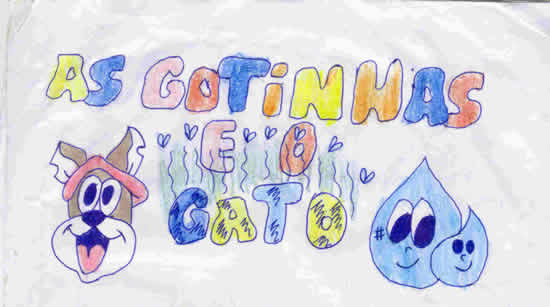 AS GOTINHAS
E O
GATO